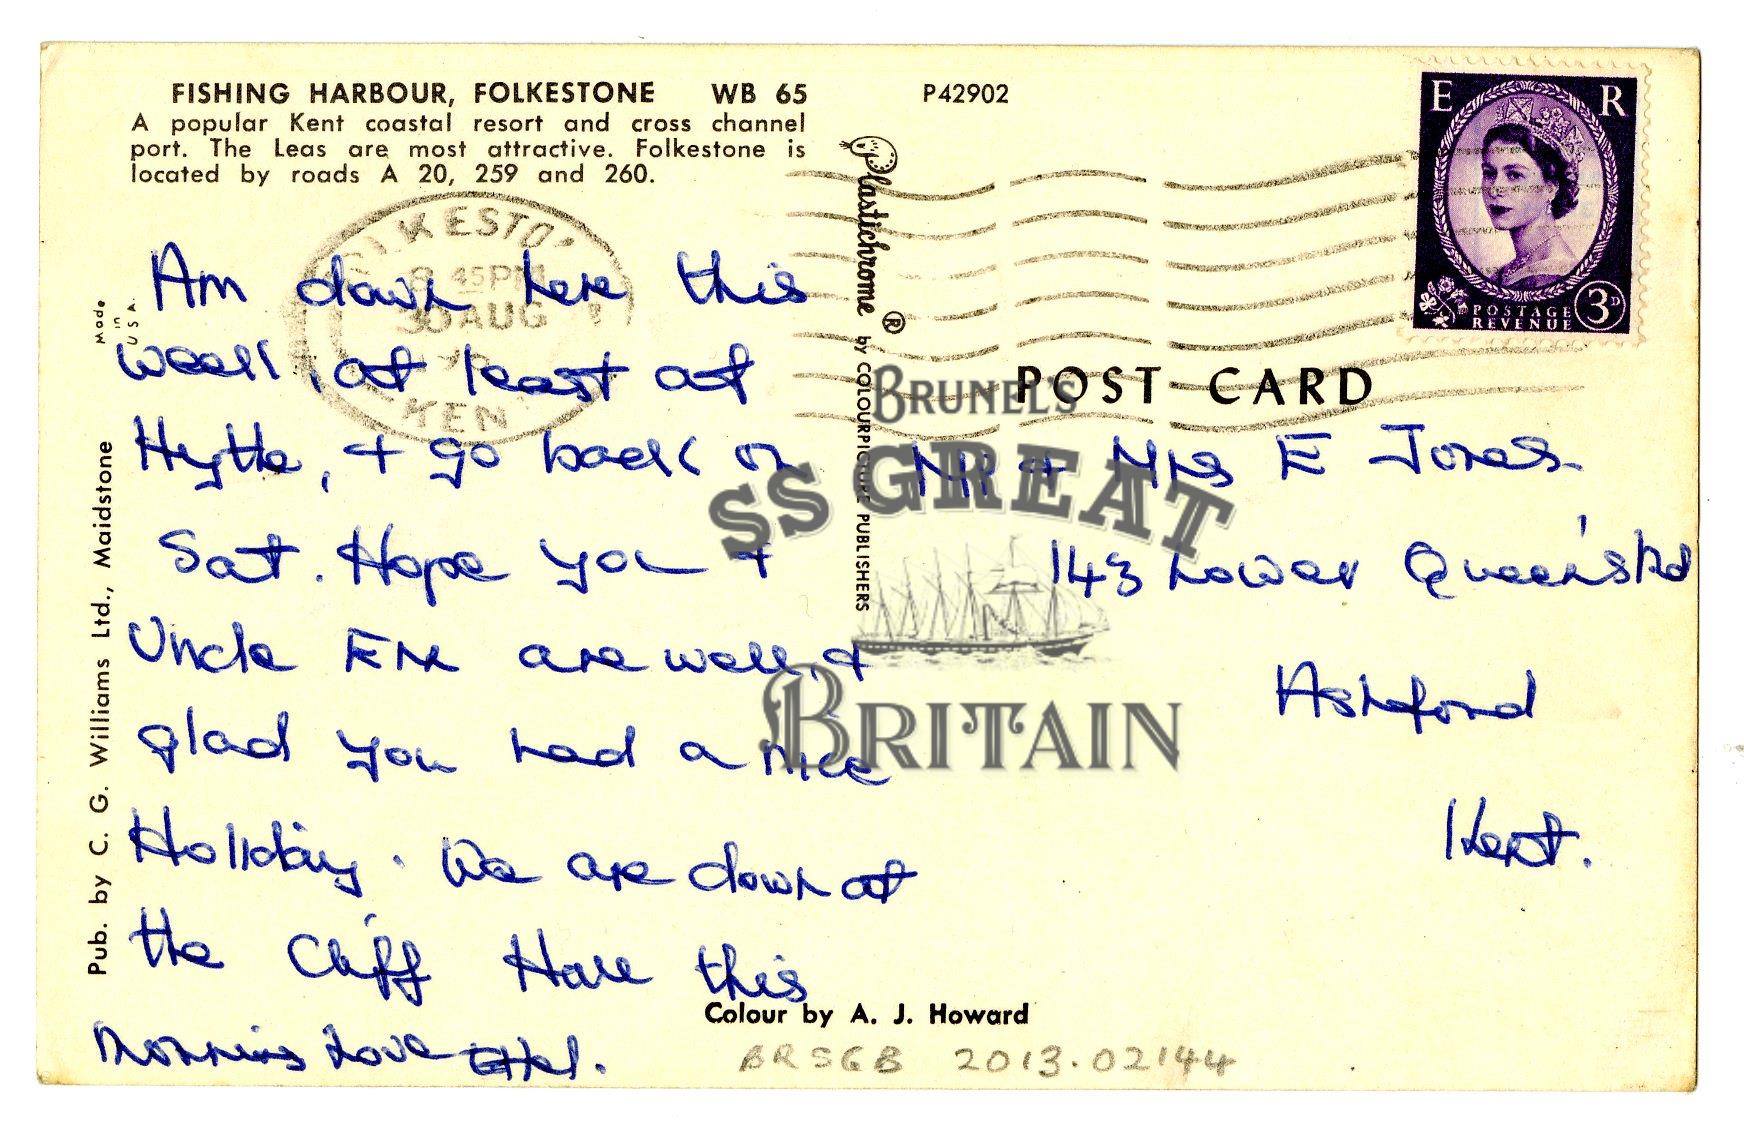 FISHING HARBOUR, FOLKESTONE WB 65
A popular Kent coastal resort and cross channel
port. The Leas are most attractive. Folkestone is
located by roads A 20, 259 and 260.
P42902
E R
POSTAGE
REVENUE
3D
KESTO
45PM
30 AUG
KEN
Made
in
U.S.A.
Pub. by C. G. Williams Ltd., Maidstone
Plastichrome ® by COLOURPICTURE PUBLISHERS
POST CARD
Am down here this
week, at least at
Hythe, + go back on
Sat. Hope you +
Uncle Ern are well, +
glad you had a nice
Holiday. We are down at
the Cliff Hall this
morning Love Ethel.
Mr + Mrs E Jones
143 Lower Queen's Rd
Ashford
Kent.
Colour by A. J. Howard
BRSGB 2013.02144
BRUNEL'S
SS GREAT
BRITAIN